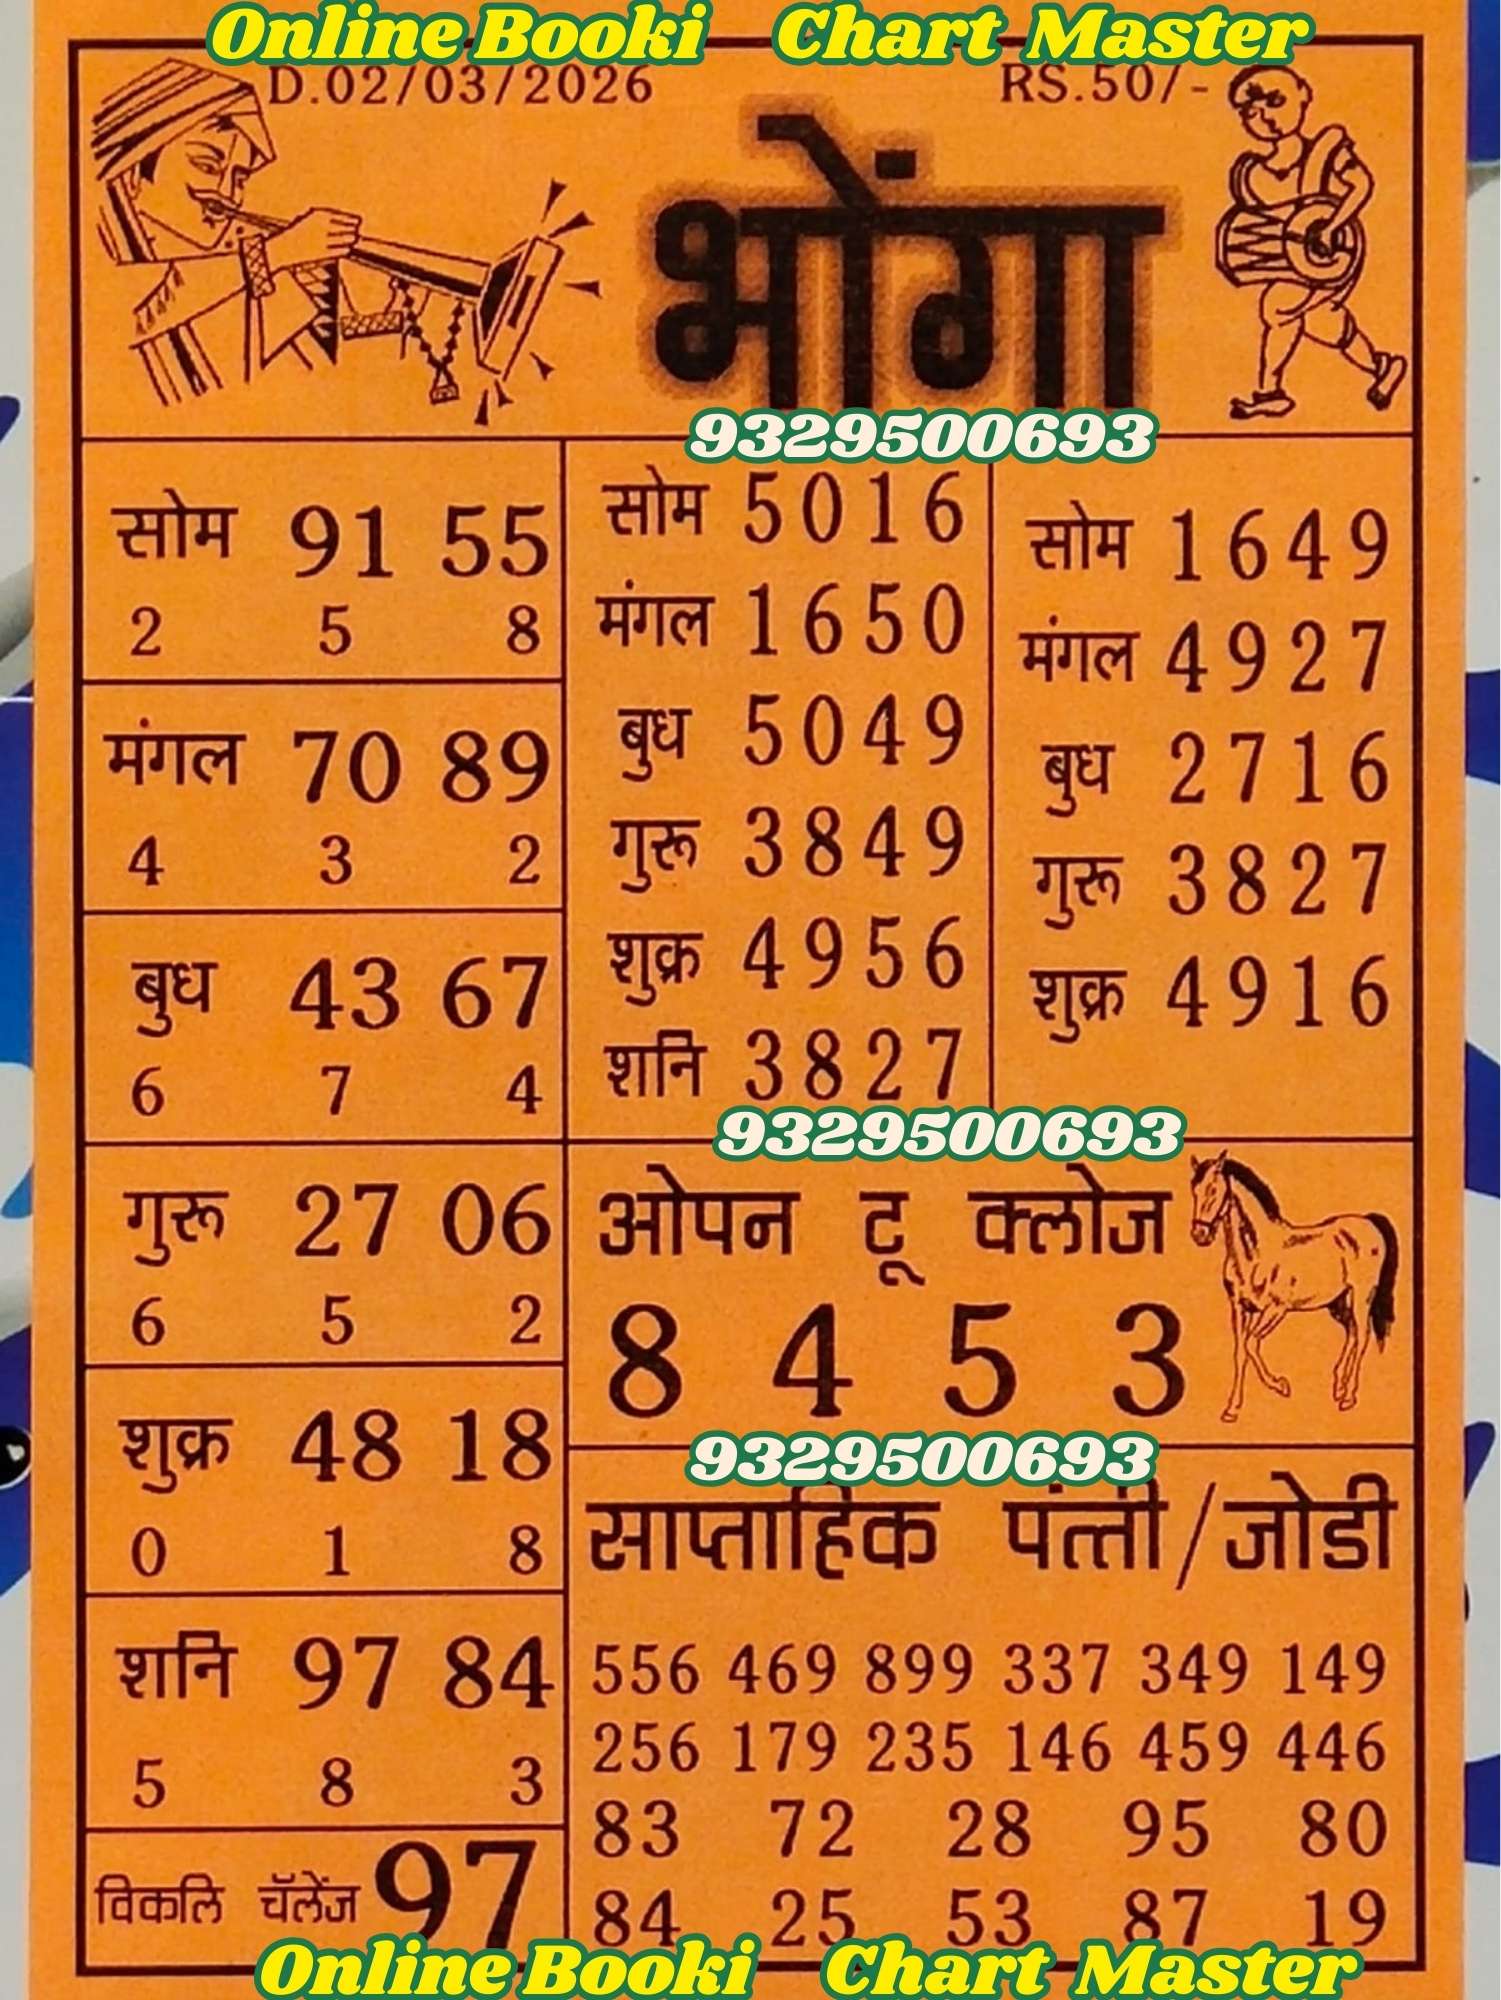 Online Booki Chart Master
D.02/03/2026 RS.50/-
भोंगा
9329500693
सोम 91 55
2 5 8
मंगल 70 89
4 3 2
बुध 43 67
6 7 4
गुरू 27 06
6 5 2
शुक्र 48 18
0 1 8
शनि 97 84
5 8 3
विकलि चॅलेंज 97
सोम 5016
मंगल 1650
बुध 5049
गुरू 3849
शुक्र 4956
शनि 3827
सोम 1649
मंगल 4927
बुध 2716
गुरू 3827
शुक्र 4916
9329500693
ओपन टू क्लोज
8 4 5 3
9329500693
साप्ताहिक पंत्ती/जोडी
556 469 899 337 349 149
256 179 235 146 459 446
83 72 28 95 80
84 25 53 87 19
Online Booki Chart Master